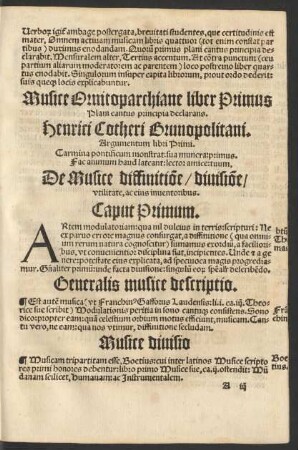 Verborũ igit̃ ambage postergata, breuitati studentes, que certitudinis est
mater, Omnem actiuam musicam libris quattuor (tot enim constat par
tibus) duximus enodandam. Quorũ primus plani cantus principia de
clarabit. Mensuralem alter, Tertius accentum. At cõtra punctum (ceu
partium aliarum moderatorem ac parentem) loco postremo liber quar
tus enodabit. Singulorum insuper capita librorum, prout ordo dederit
suis queqz locis explicabuntur.
Musice Ornitoparchiane liber Primus
Plani cantus principia declarans.
Henrici Cotheri Brunopolitani.
Argumentum libri Primi.
Carmina pontificum monstrat sua munera primus.
Fac animum haud lateant: lector amice tuum.
De Musice diffinitiõe/ diuisiõe/
vtilitate, ac eius inuentoribus.
Caput Primum.
ARtem modulatoriam: qua nil dulcius in terris
ex paruo errore magnus consurgat, a diffinitione (qua omni
um rerum natura cognoscitur) sumamus exordiũ, a faciliori
bus, vt conuenientior disciplina fiat, incipientes.
nere: principatẽ eius explicata, ad specuoca magis progredia
mur. primum de facta diuisione: singulũ describẽdo.
Generalis musice descriptio.
¶ Est autẽ musica (vt Franchinꝰ Gafforus Laudensis li. i. ca. iij. Theo
rice sue scribit) Modulationis peritia in sono cantuqz consistens. Sono
dico: propter eam: quã celestium orbium motus efficiunt, musicam. Can
tu vero, ne eam: qua nos vtimur, diffinitione secludam.
Musice diuisio
¶ Musicam tripartitam esse, Boetius: cui inter latinos Musice scripto
res primi honores debentur: libro primo Musice sue, ca. ij. ostendit: Mũ
danam scilicet, humanam: ac Instrumentalem.
Boe
tius.
A iij